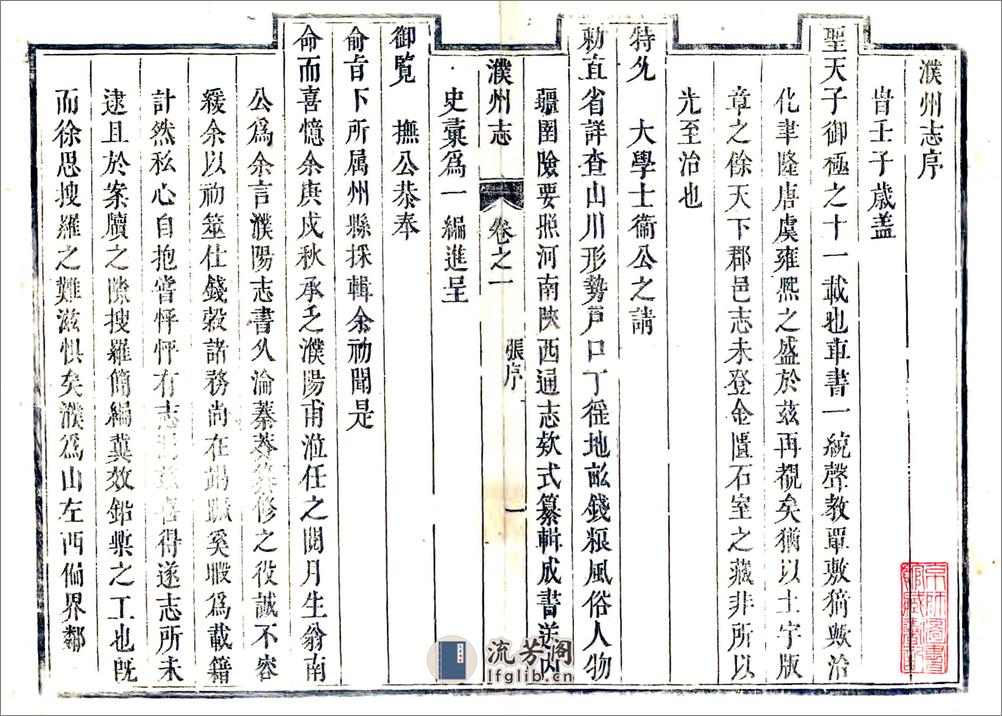 濮州志序
昔壬子歲蓋
聖天子御極之十一載也車書一統聲教覃敷猗歟治
化聿隆唐虞雍熙之盛於茲再覩矣猶以土宇版
章之餘天下郡邑志未登金匱石室之藏非所以
光至治也
特允 大學士衞公之請
勅直省詳查山川形勢戸口丁徭地畝錢粮風俗人物
疆圉險要照河南陝西通志欵式纂輯成書送内
濮州志 卷之一 張序 一
史彙爲一編進呈
御覧 撫公恭奉
俞旨下所属州縣採輯余初聞是
命而喜憶余庚戌秋承乏濮陽甫涖任之閱月生翁南
公爲余言濮陽志書久淪蓁莽修之役誠不容
緩余以初筮仕錢穀諸務尚在蝟奚暇爲載籍
計然私心自抱嘗怦怦有志茲喜得遂志所未
逮且於案牘之隙搜羅簡編冀效鉛槧之工也旣
而徐思搜羅之難滋惧矣濮爲山左西偏界鄰
京師圖書館藏書記
流芳阁
lfglib.cn